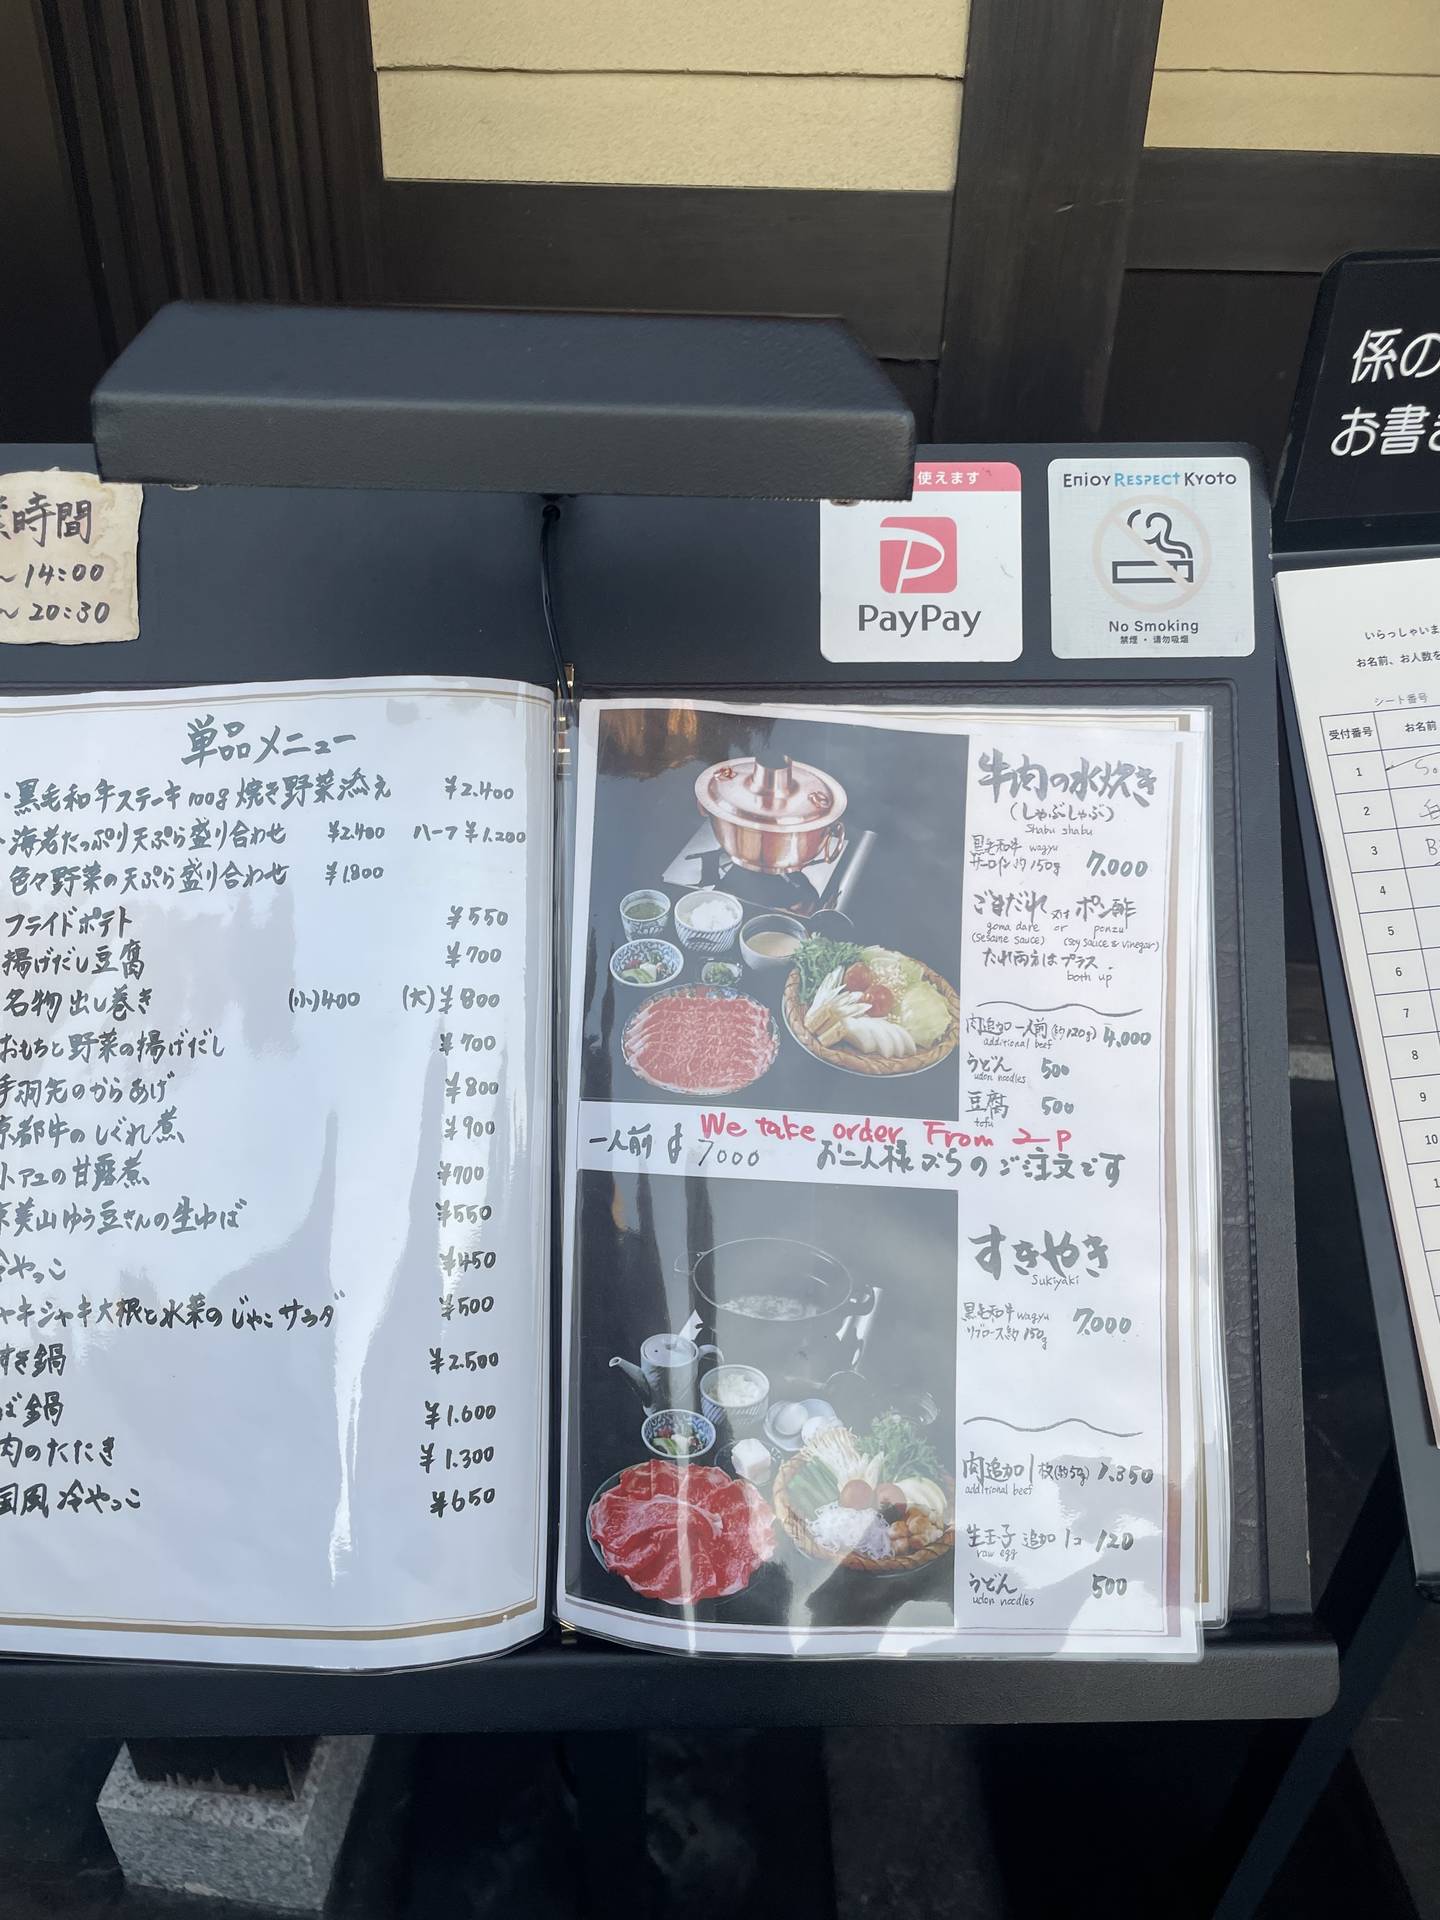 時間
~14:00
~20:30
使えます
PayPay
Enjoy RESPECT Kyoto
No Smoking
禁煙・请勿吸烟
係の
お書き
単品メニュー
・黒毛和牛ステーキ100g 焼き野菜添え ¥2.400
・海老たっぷり天ぷら盛り合わせ ¥2.400 ハーフ ¥1.200
色々野菜の天ぷら盛り合わせ ¥1.800
フライドポテト ¥550
揚げだし豆腐 ¥700
名物出し巻き (小)400 (大)¥800
おもちと野菜の揚げだし ¥700
手羽先のからあげ ¥800
京都牛のしぐれ煮 ¥900
アユの甘露煮 ¥700
京美山ゆう豆さんの生ゆば ¥550
冷やっこ ¥450
キシャキ大根と水菜のじゃこサラダ ¥500
すき鍋 ¥2.500
ば鍋 ¥1.600
肉のたたき ¥1.300
国風冷やっこ ¥650
牛肉の水炊き
(しゃぶしゃぶ)
Shabu shabu
黒毛和牛 wagyu
サーロイン約150g 7.000
ごまだれ 又は ポン酢
goma dare or ponzu
(sesame sauce) (soy sauce & vinegar)
たれ両方はプラス
both up
肉追加一人前(約120g) 4.000
additional beef
うどん 500
udon noodles
豆腐 500
tofu
We take order From 2-P
一人前 ¥7000 お二人様からのご注文です
すきやき
Sukiyaki
黒毛和牛 wagyu
リブロース約150g 7.000
肉追加1枚(約50g) 1.350
additional beef
生玉子追加1コ 120
raw egg
うどん 500
udon noodles
いらっしゃいま
お名前、お人数を
シート番号
受付番号 お名前
1
2
3
4
5
6
7
8
9
10